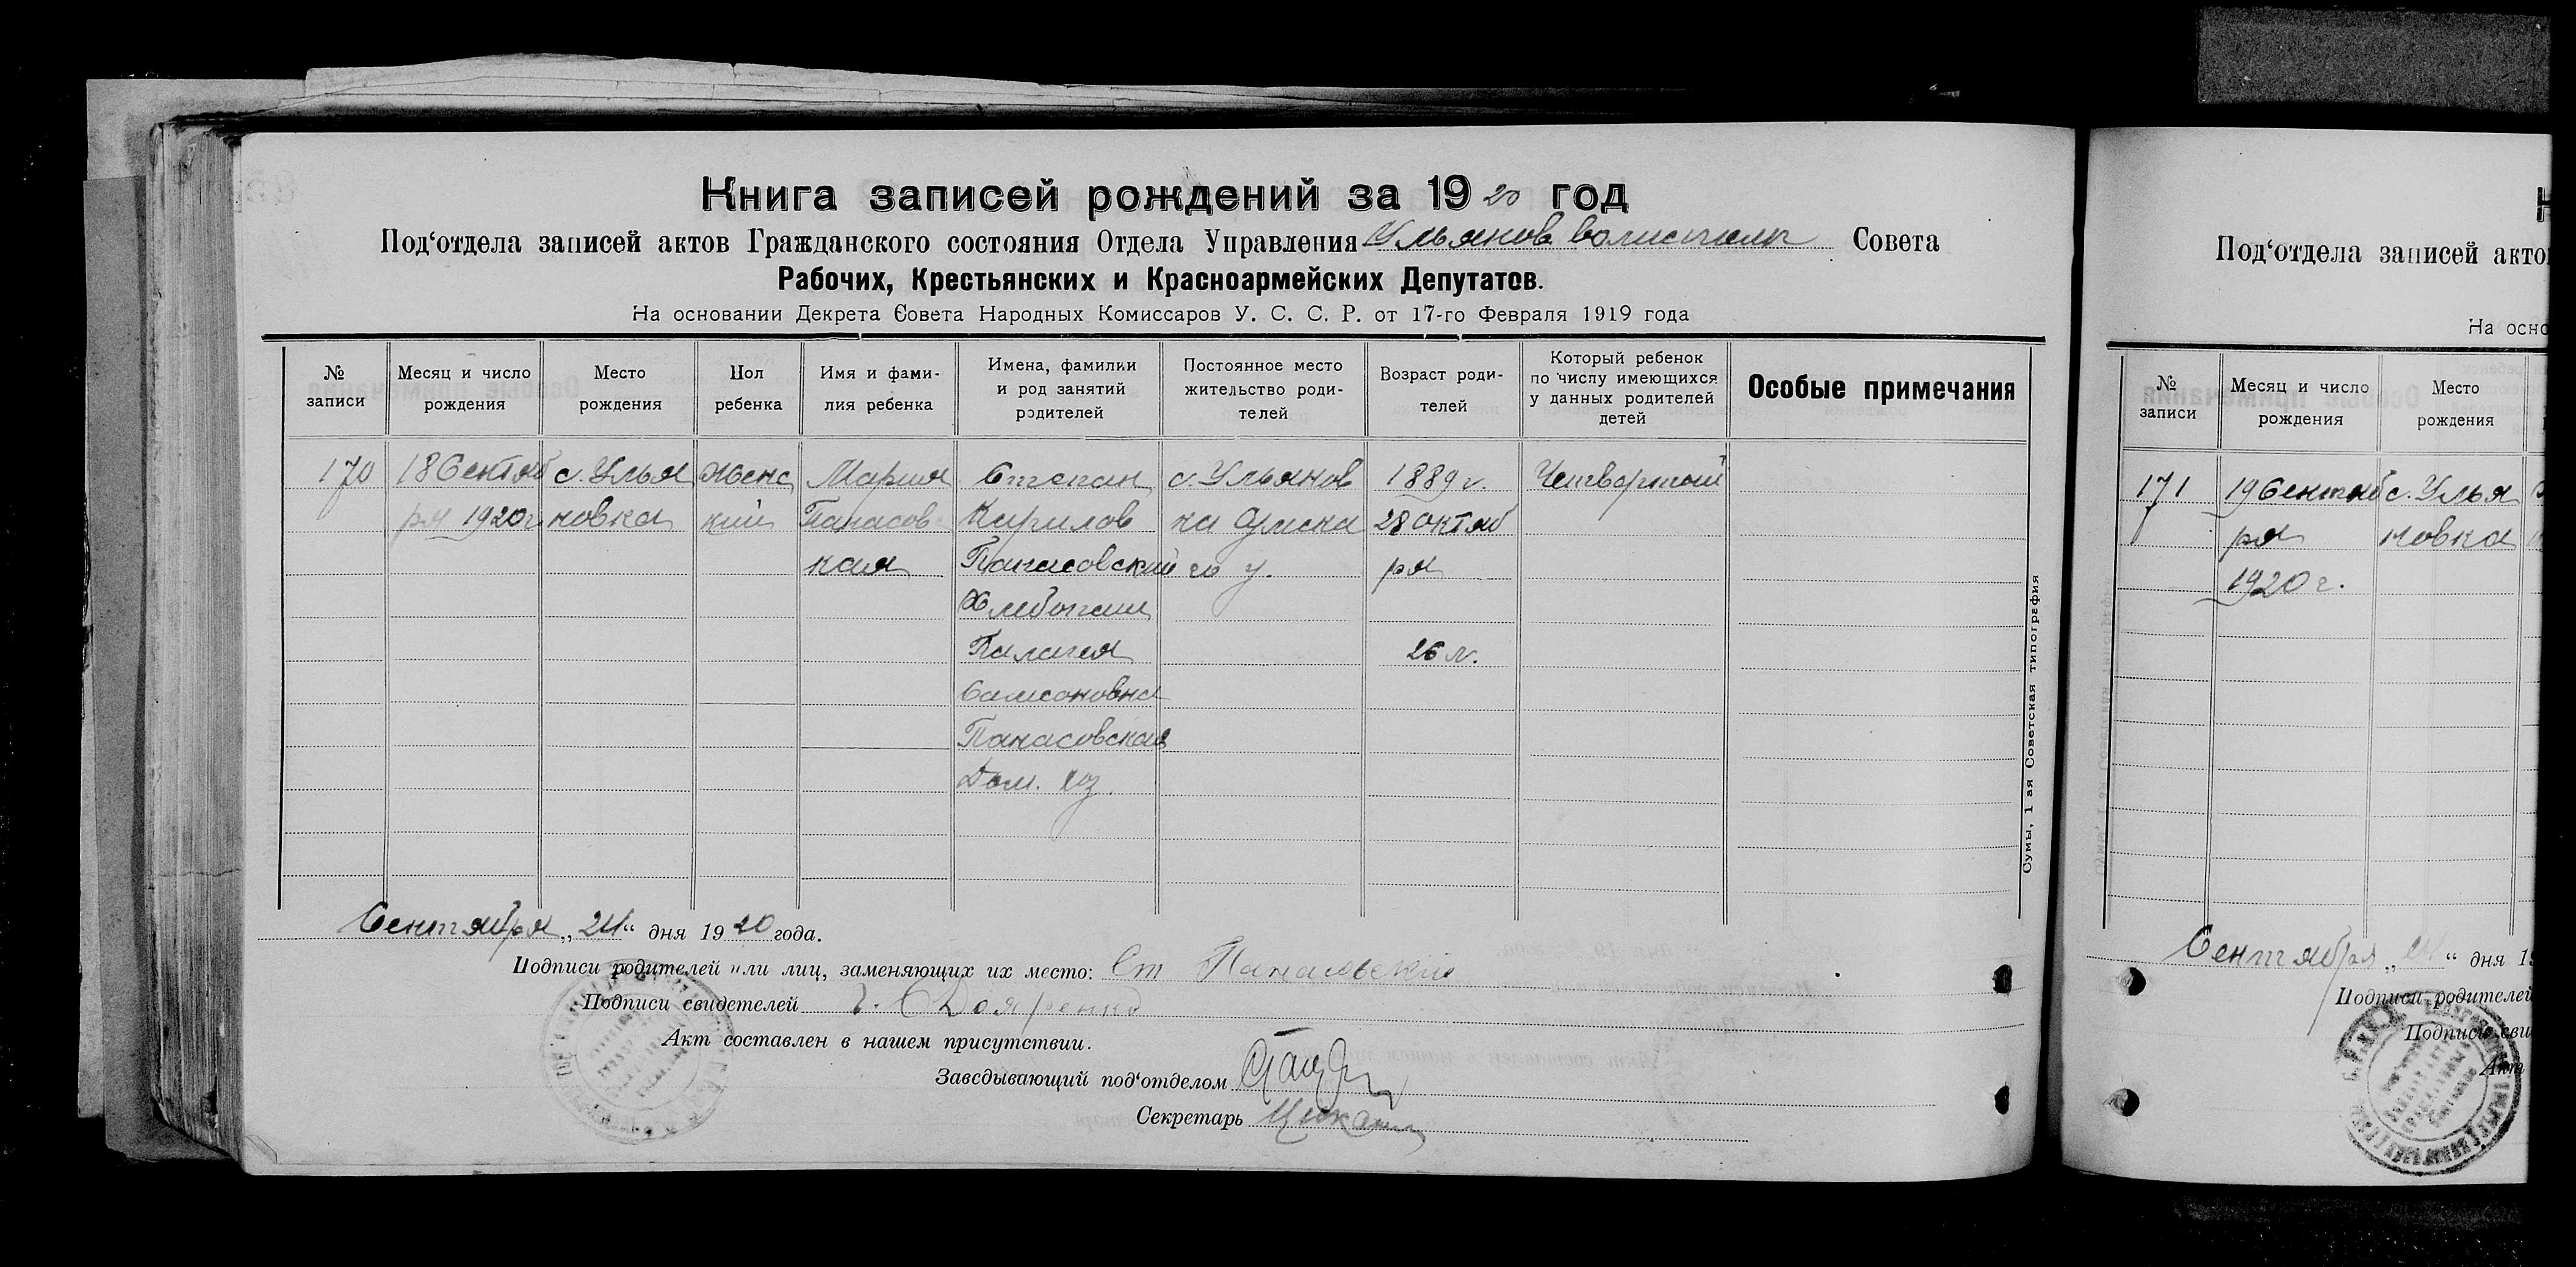 Книга записей рождений за 1920 год
Под‘отдела записей актов Гражданского состояния Отдела Управления Ульянов Совета
Рабочих, Крестьянских и Красноармейских Депутатов.
На основании Декрета Совета Народных Комиссаров У. С. С. Р. от 17-го Февраля 1919 года
№ записи
Месяц и число рождения
Место рождения
Пол ребенка
Имя и фами-
лия ребенка
Имена, фамилии
и род занятий
родителей
Постоянное место
жительство роди-
телей
Возраст роди-
телей
Который ребенок
по числу имеющихся
у данных родителей
детей
Особые примечания
170
18 Сентяб
ря 1920 г.
с. Улья
новка
женс
кий
Мария
Панасовс
кая
Степан
Кирилов
Панасовский
Хлебопаш
Палагея
Самсоновна
Панасовская
Дом. хоз.
с. Ульянов
ка Сумска
го у.
1889 г.
28 октяб
ря
26 л.
Четвертый
Сумы, 1 ая Советская типография
Сентября „24“ дня 1920 года.
Подписи родителей или лиц, заменяющих их место: Ст Панасовский
Подписи свидетелей Дояренко
Акт составлен в нашем присутствии.
Заведывающий под‘отделом
Секретарь
Под‘отдела записей акто
На осно
№ записи
Месяц и число рождения
Место рождения
171
19 Сентяб
ря
1920 г.
с. Улья
новка
Сентября „24“ дня 19
Подписи родителей
Подписи сви
Акт